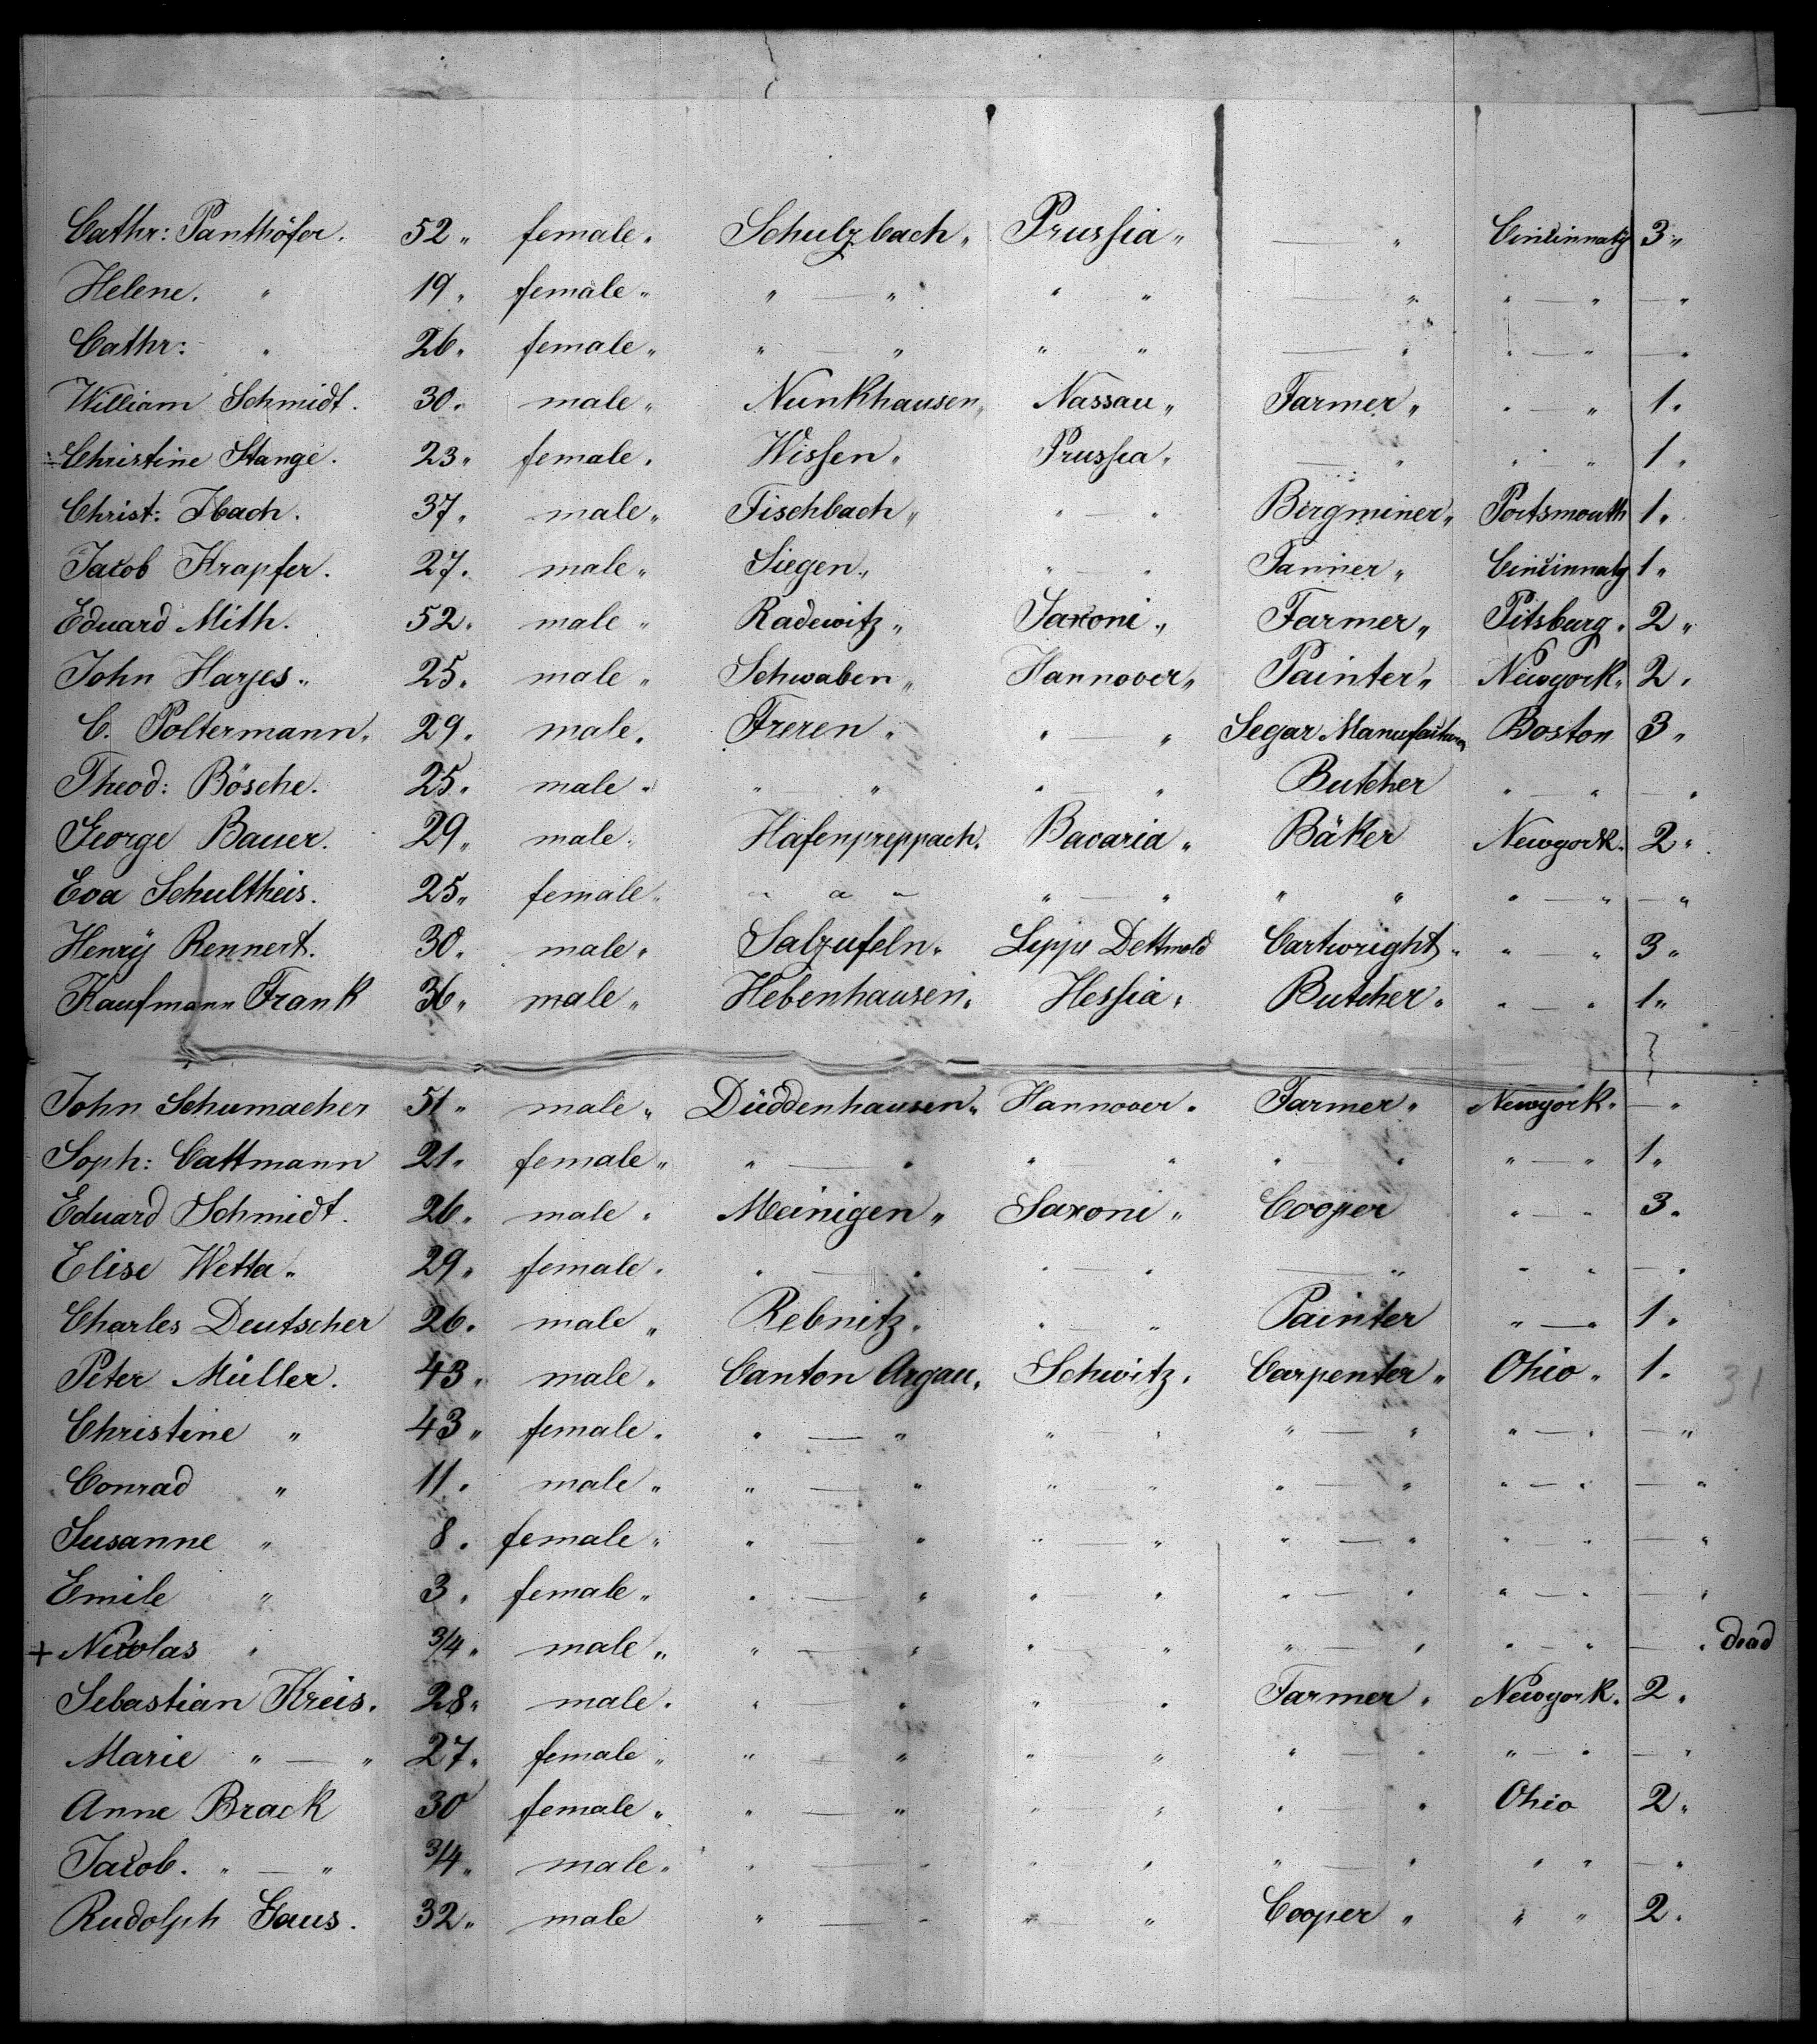 Cathr: Panthöfer. 52 " female " Schulzbach " Prussia " — " Cincinnaty 3 "
Helene. " 19 " female " " — " " " — " " — " — "
Cathr: " 26 " female " " — " " " — " " — " — "
William Schmidt. 30 " male " Nunkhausen " Nassau " Farmer " " — " 1 "
Christine Stange. 23 " female " Wissen " Prussia " — " " — " 1 "
Christ: Ibach. 37 " male " Fischbach " " — " Bergminer " Portsmouth 1 "
Jacob Krapfer. 27 " male " Siegen " " — " Tanner " Cincinnaty 1 "
Eduard Mith. 52 " male " Radewitz " Saxoni " Farmer " Pitsburg " 2 "
John Harjes " 25 " male " Schwaben " Hannover " Painter " Newyork " 2 "
C. Poltermann " 29 " male " Freren " " — " Segar Manufacturer Boston 3 "
Theod: Bösche. 25 " male " " — " " — " Butcher " — " — "
George Bauer. 29 " male " Hafenpreppach " Bavaria " Bäker Newyork " 2 "
Eva Schultheis. 25 " female " " " " " — " " " " — " — "
Henry Rennert. 30 " male " Salzufeln " Lippe Dettmold Cartwright " " — " 3 "
Kaufmann Frank 36 " male " Hebenhausen " Hessia " Butcher " " — " 1 "
John Schumacher 51 " male " Düddenhausen " Hannover " Farmer " Newyork " — "
Soph: Cattmann 21 " female " " — " " " " " " — " 1 "
Eduard Schmidt. 26 " male " Meinigen " Saxoni " Cooper " — " 3 "
Elise Wetta " 29 " female " " — " " — " — " " " — "
Charles Deutscher 26 " male " Rebnitz " " — " Painter " — " 1 "
Peter Müller. 43 " male " Canton Argau " Schwitz " Carpenter " Ohio " 1 " 31
Christine " 43 " female " " — " " — " " — " " — " — "
Conrad " 11 " male " " — " " — " " — " " — " — "
Susanne " 8 " female " " — " " — " " — " " — " — "
Emile " 3 " female " " — " " — " " — " " — " — "
+ Nicolas " 3/4 " male " " — " " — " " — " " — " — " dead
Sebastian Kreis. 28 " male " " — " " " Farmer " Newyork " 2 "
Marie " — " 27 " female " " — " " — " " — " " — " — "
Anne Brack 30 female " " — " " — " " — " Ohio 2 "
Jacob. " — " 3/4 " male " " — " " — " " — " " " — "
Rudolph Gaus. 32 " male " — " " — " Cooper " " " 2 "